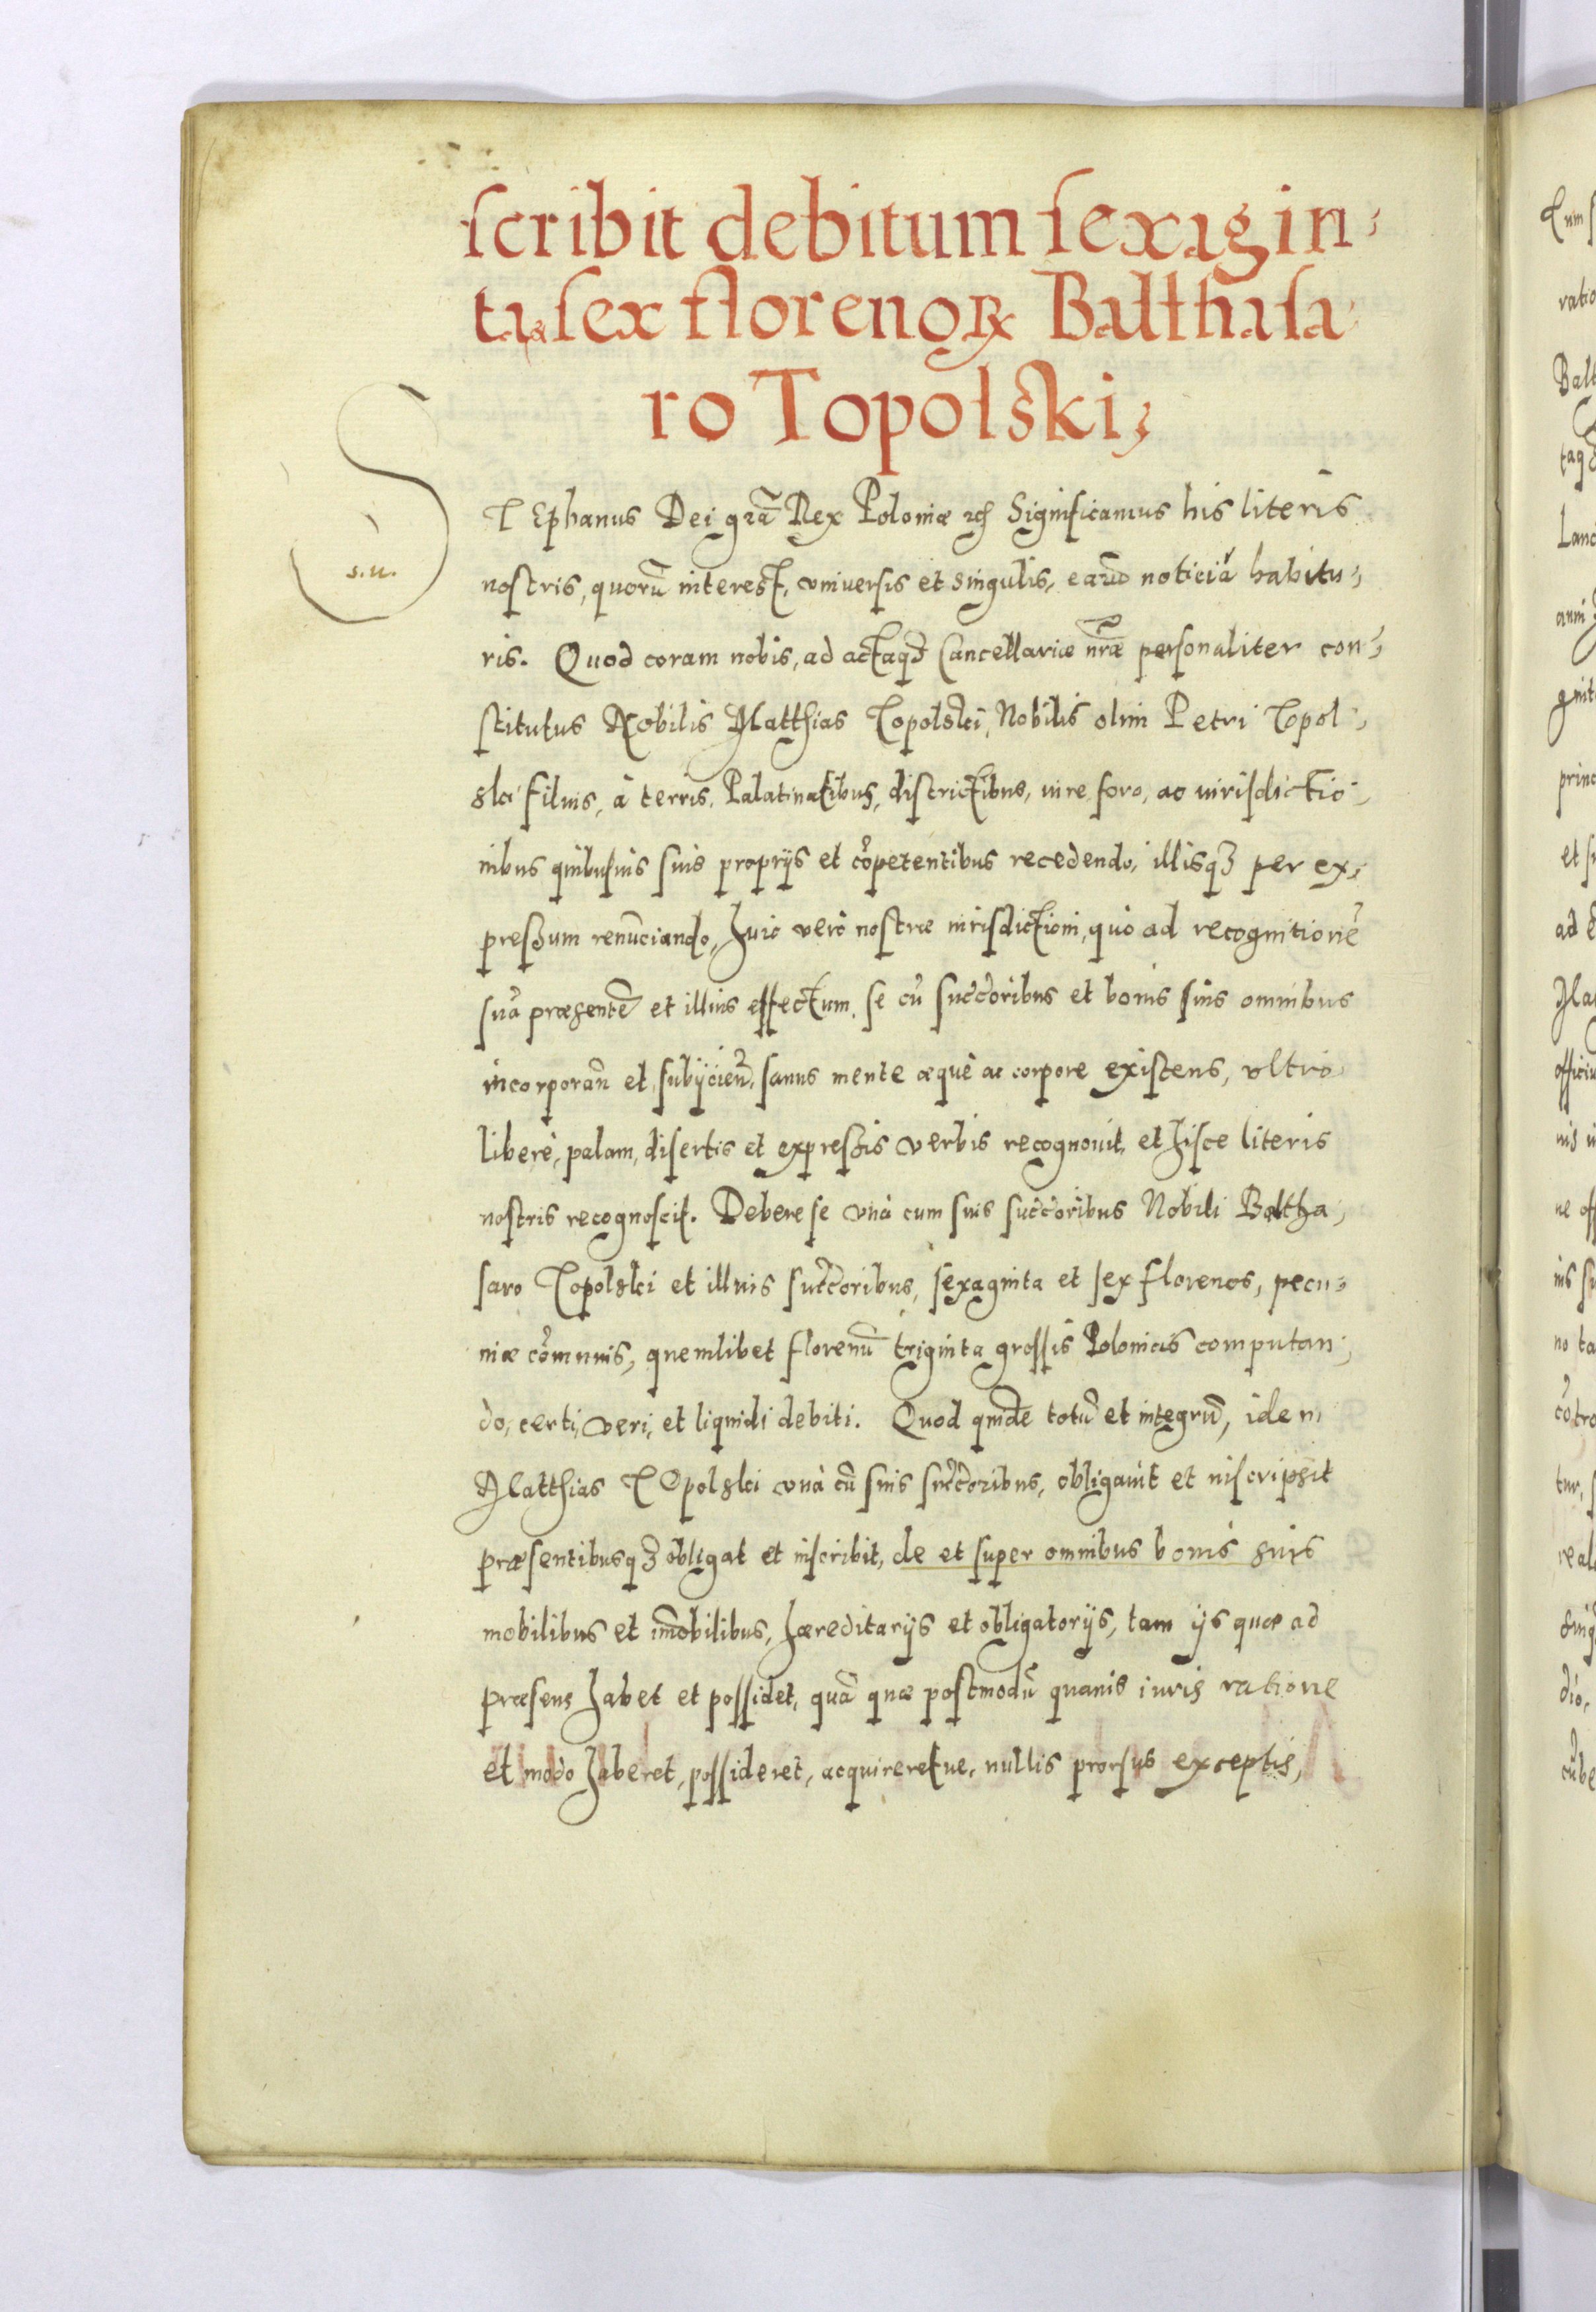 scribit debitum sexagin-
ta & sex florenoꝝ Balthasa
ro Topolski;
STEphanus Dei gr̃a Rex Poloniæ ꝛc̃ Significamus his literis
s.u.
nostris, quorũ interest, vniversis et singulis, earũ noticiã habitu-
ris. Quod coram nobis, ad actaqꝫ Cancellariæ nr̃æ personaliter con-
stitutus Nobilis Matthias Topolski, Nobilis olim Petri Topol-
ski filius, à terris, Palatinatibus, districtibus, iure, foro, ac iurisdictio-
nibus quibusuis suis proprijs et cõpetentibus recedendo, illisqꝫ per ex-
pressum renũciando, huic verò nostræ iurisdictioni, quò ad recognitionẽ
suã præsentẽ et illius effectum, se cũ succ̃oribus et bonis suis omnibus
incorporañ et subijcień, sanus mente æquè ac corpore existens, vltrò
liberè, palam, disertis et expressis verbis recognouit, et hisce literis
nostris recognoscit. Debere se vnà cum suis succ̃oribus Nobili Baltha-
saro Topolski et illius succ̃oribus, sexaginta et sex florenos, pecu-
niæ cõmunis, quemlibet florenũ triginta grossis Polonicis computan-
do, certi, veri, et liquidi debiti. Quod quidẽ totũ et integrũ, idem
Matthias TOpolski vnà cũ suis succ̃oribus, obligauit et inscripsit
præsentibusqꝫ obligat et inscribit, de et super omnibus bonis suis
mobilibus et im̃obilibus, hæreditarijs et obligatorijs, tam ijs quæ ad
præsens habet et possidet, quã quæ postmodũ quauis iuris ratione
et modo haberet, possideret, acquireretue, nullis prorsus exceptis,